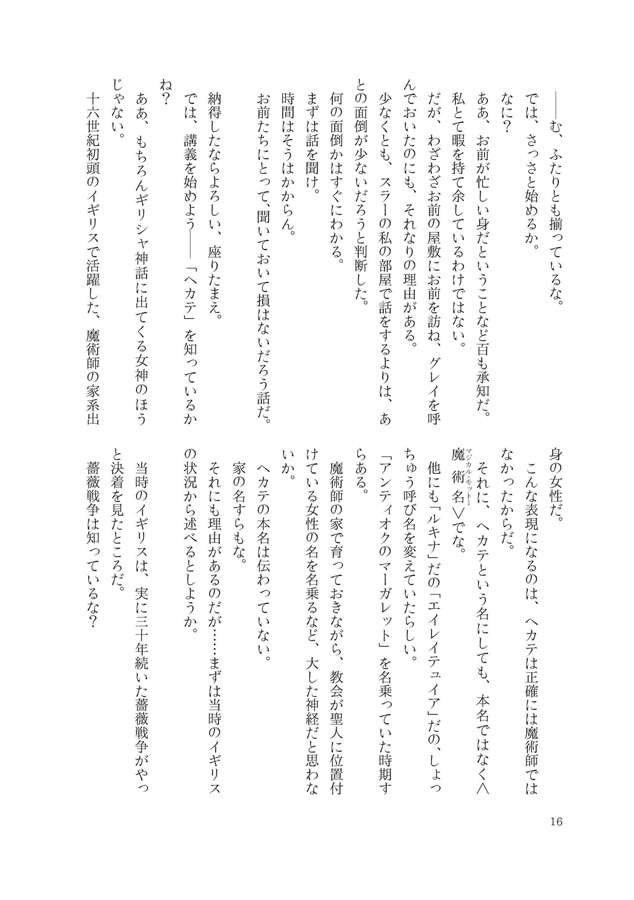 ――む、ふたりとも揃っているな。
では、さっさと始めるか。
なに？
ああ、お前が忙しい身だということなど百も承知だ。
私とて暇を持て余しているわけではない。
だが、わざわざお前の屋敷にお前を訪ね、グレイを呼
んでおいたのにも、それなりの理由がある。
少なくとも、スラーの私の部屋で話をするよりは、あ
との面倒が少ないだろうと判断した。
何の面倒かはすぐにわかる。
まずは話を聞け。
時間はそうはかからん。
お前たちにとって、聞いておいて損はないだろう話だ。
納得したならよろしい、座りたまえ。
では、講義を始めよう――「ヘカテ」を知っているか
ね？
ああ、もちろんギリシャ神話に出てくる女神のほう
じゃない。
十六世紀初頭のイギリスで活躍した、魔術師の家系出
身の女性だ。
こんな表現になるのは、ヘカテは正確には魔術師では
なかったからだ。
それに、ヘカテという名にしても、本名ではなく＜
マジカル・モットー
魔術名＞でな。
他にも「ルキナ」だの「エイレイテュイア」だの、しょっ
ちゅう呼び名を変えていたらしい。
「アンティオクのマーガレット」を名乗っていた時期す
らある。
魔術師の家で育っておきながら、教会が聖人に位置付
けている女性の名を名乗るなど、大した神経だと思わな
いか。
ヘカテの本名は伝わっていない。
家の名すらもな。
それにも理由があるのだが……まずは当時のイギリス
の状況から述べるとしようか。
当時のイギリスは、実に三十年続いた薔薇戦争がやっ
と決着を見たところだ。
薔薇戦争は知っているな？
16